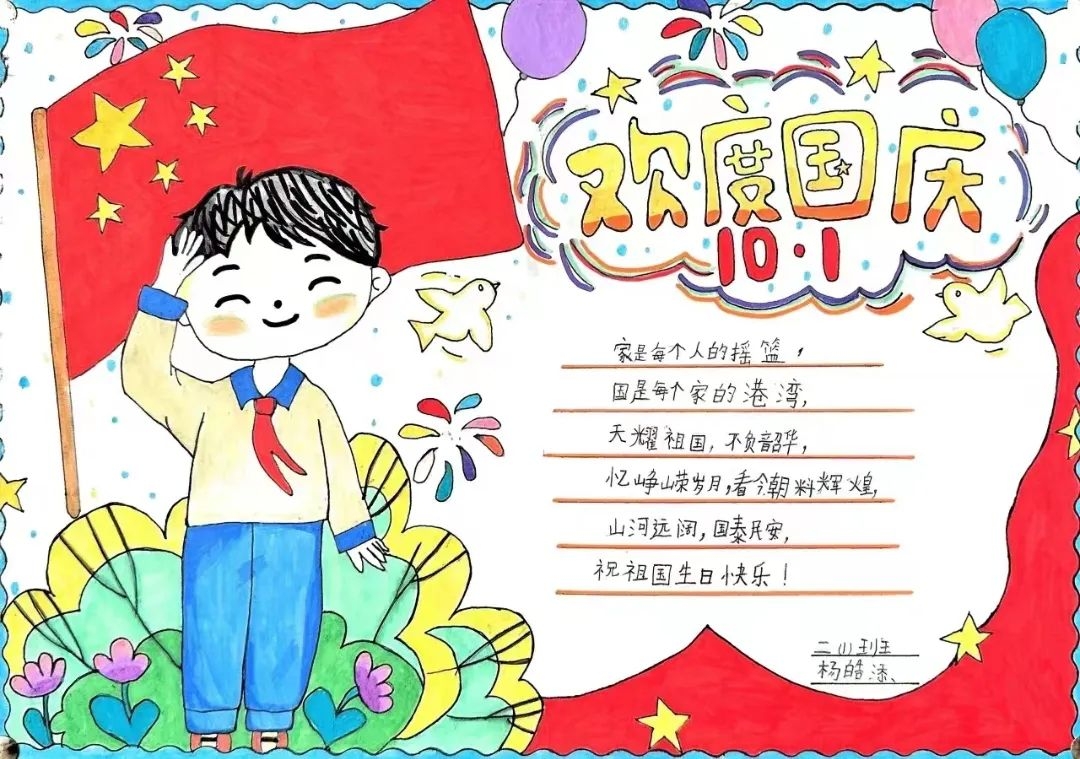 欢度国庆
10·1
家是每个人的摇篮，
国是每个家的港湾，
天耀祖国，不负韶华，
忆峥嵘岁月，看今朝料辉煌，
山河远阔，国泰民安，
祝祖国生日快乐！
二(1)班
杨皓添、